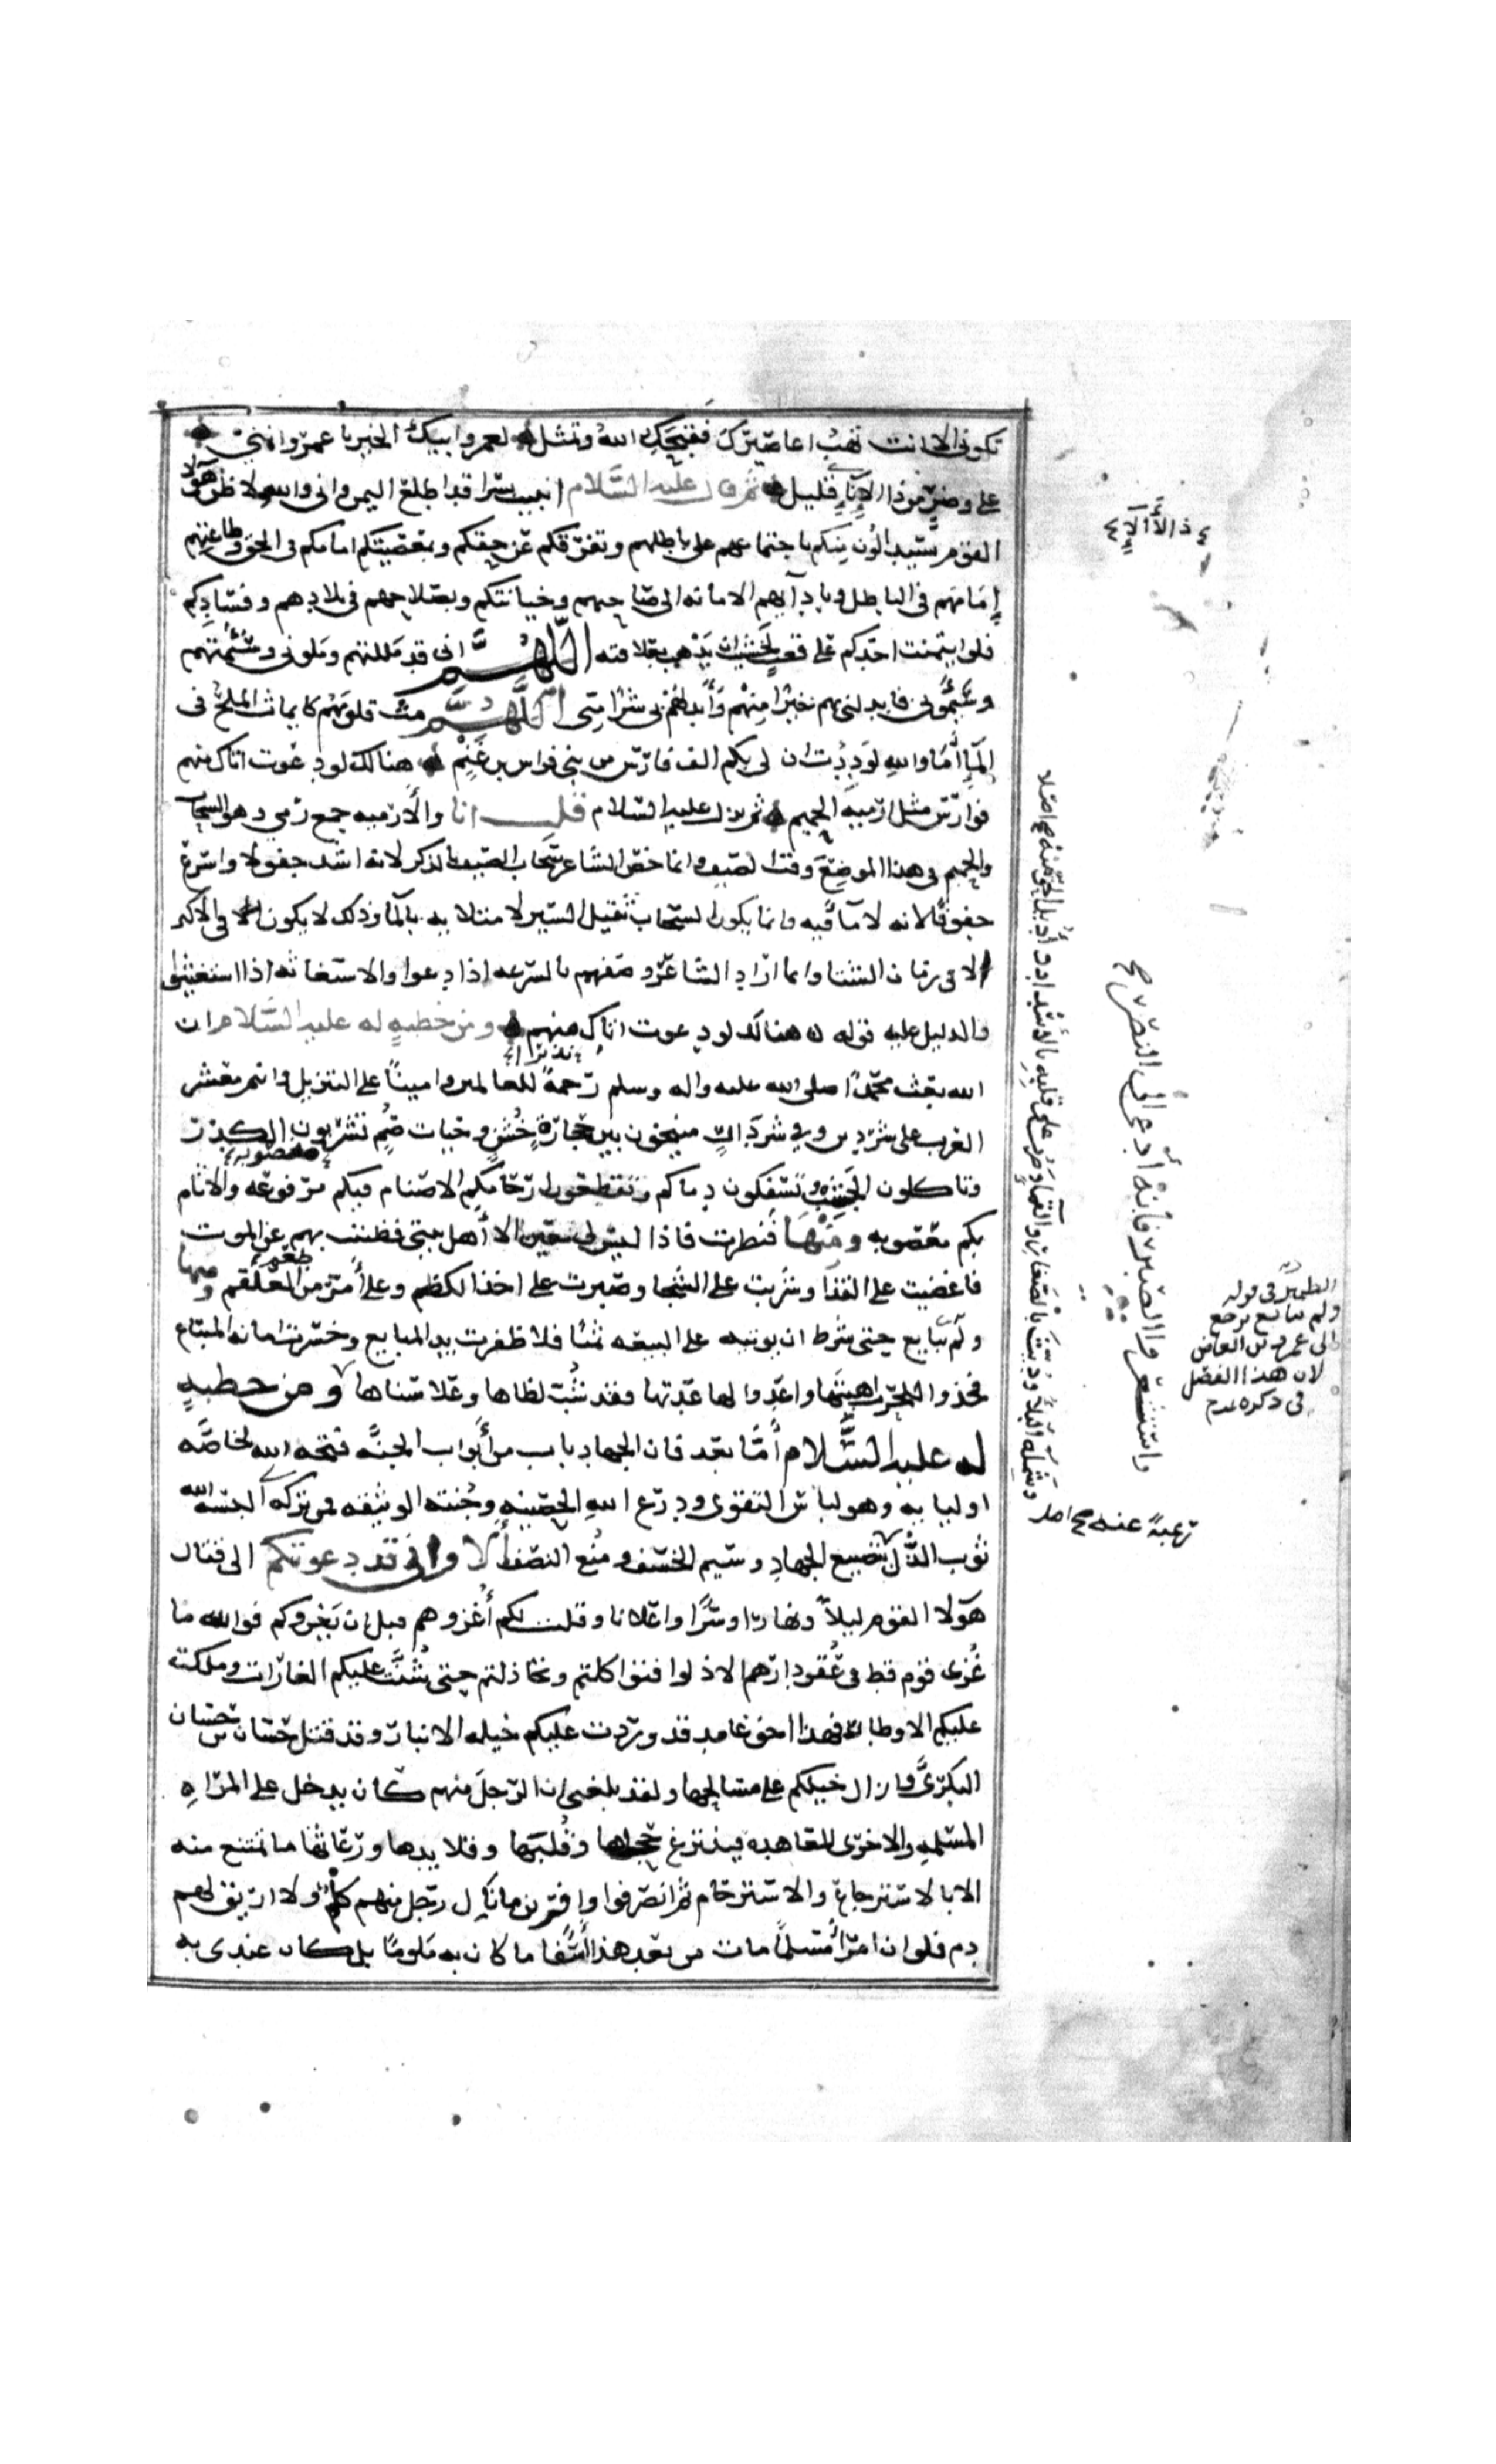 تكوني الا انت تهب اعاصيرك فقبحك الله وتمثل لعمر وابيك الخير يا عمرو انني
على وضر من ذا الاناء قليل ثم قال عليه السلام انبيت بسرا قد اطلع اليمن واني والله لا ظن هولا
القوم سيدالون منكم باجتماعهم على باطلهم وتفرقكم عن حقكم وبمعصيتكم امامكم في الحق وطاعتهم
إمامهم في الباطل وبادآيهم الامانه الى صاحبهم وخيانتكم وبصلاحهم في بلادهم وفسادكم
فلو ايتمنت احدكم على قعب لخشيت ان يذهب بعلاقته اللهم اني قد مللتهم وملوني وسئمتهم
وسئموني فابدلني بهم خيرا منهم وأبدلهم بي شرا مني اللهم مث قلوبهم كما يماث الملح في
المآ أما والله لوددت ان لي بكم الف فارس من بني فراس بن غنم هنالك لو دعوت اتاك منهم
فوارس مثل ارمية الحميم ثم نزل عليه السلام قلت انا والأرميه جمع رمي وهو السحاب
والحميم في هذا الموضع وقت الصيف وانما خص الشاعر سحاب الصيف بالذكر لانه اشد جفولا واسرع
خفوفا لانه لا مآ فيه وانما يكون السحاب ثقيل السير لامتلايه بالمآ وذلك لا يكون في الاكثر
الا في زمان الشتا وانما اراد الشاعر وصفهم بالسرعه اذا دعوا والاستغاثه اذا استغيثوا
والدليل عليه قوله هنالك لو دعوت اتاك منهم ومن خطبة له عليه السلام ان
الله بعث محمدا صلى الله عليه واله وسلم رحمة نذيرا للعالمين وامينا على التنزيل وانتم معشر
العرب على شر دين وفي شر دار منيخون بين حجارة خشن وحيات صم تشربون الكدر
وتاكلون الجشب وتسفكون دماكم وتقطعون ارحامكم الاصنام فيكم مرفوعه والاثام
بكم معصوبه ومنها فنظرت فاذا ليس لي معين الا أهل بيتي فظننت بهم عن الموت
فاغضيت على القذا وشربت على الشجا وصبرت على اخذ الكظم وعلى أمر من طعم العلقم ومنها
ولم يبايع حتى شرط ان يوتيه على البيعه ثمنا فلا ظفرت يد المبايع وخزيت امانه المبتاع
فخذوا للحرب اهبتها واعدوا لها عدتها فقد شب لظاها وعلا سناها ومن خطبة
له عليه السلام أما بعد فان الجهاد باب من أبواب الجنه فتحه الله لخاصه
اوليايه وهو لباس التقوى ودرع الله الحصينه وجنته الوثيقه فمن تركه البسه الله
ثوب الذل بتضييع الجهاد وسيم الخسف ومنع النصف ألا واني قد دعوتكم الى قتال
هولا القوم ليلا ونهارا وسرا واعلانا وقلت لكم أغزوهم قبل ان يغزوكم فوالله ما
غزي قوم قط في عقر دارهم الا ذلوا فتواكلتم وتخاذلتم حتى شنت عليكم الغارات وملكت
عليكم الاوطان فهذا اخو غامد قد وردت عليكم خيله الانبار وقد قتل حسان بن حسان
البكري وازال خيلكم على مسالحها ولقد بلغني ان الرجل منهم كان يدخل على المراه
المسلمه والاخرى المعاهده فينتزع حجلها وقلبها وقلايدها ورعاثها ما تمتنع منه
الا بالاسترجاع والاسترحام ثم انصرفوا وافرين ما نال رجل منهم كلم ولا اريق لهم
دم فلو ان امرأ مسلما مات من بعد هذا أسفا ما كان به ملوما بل كان عندي به
ذ الأآلاء
واستشعروا الصبر فانه أدعى الى النصر صح
الضمير في قوله
ولم يبايع يرجع
الى عمرو بن العاص
لان هذا الفصل
في ذكره
وشمله البلا وديث بالصغار والقما وضرب على قلبه بالاسداد وأديل الحق منه صح اصلا
رغبة عنه صح اصل